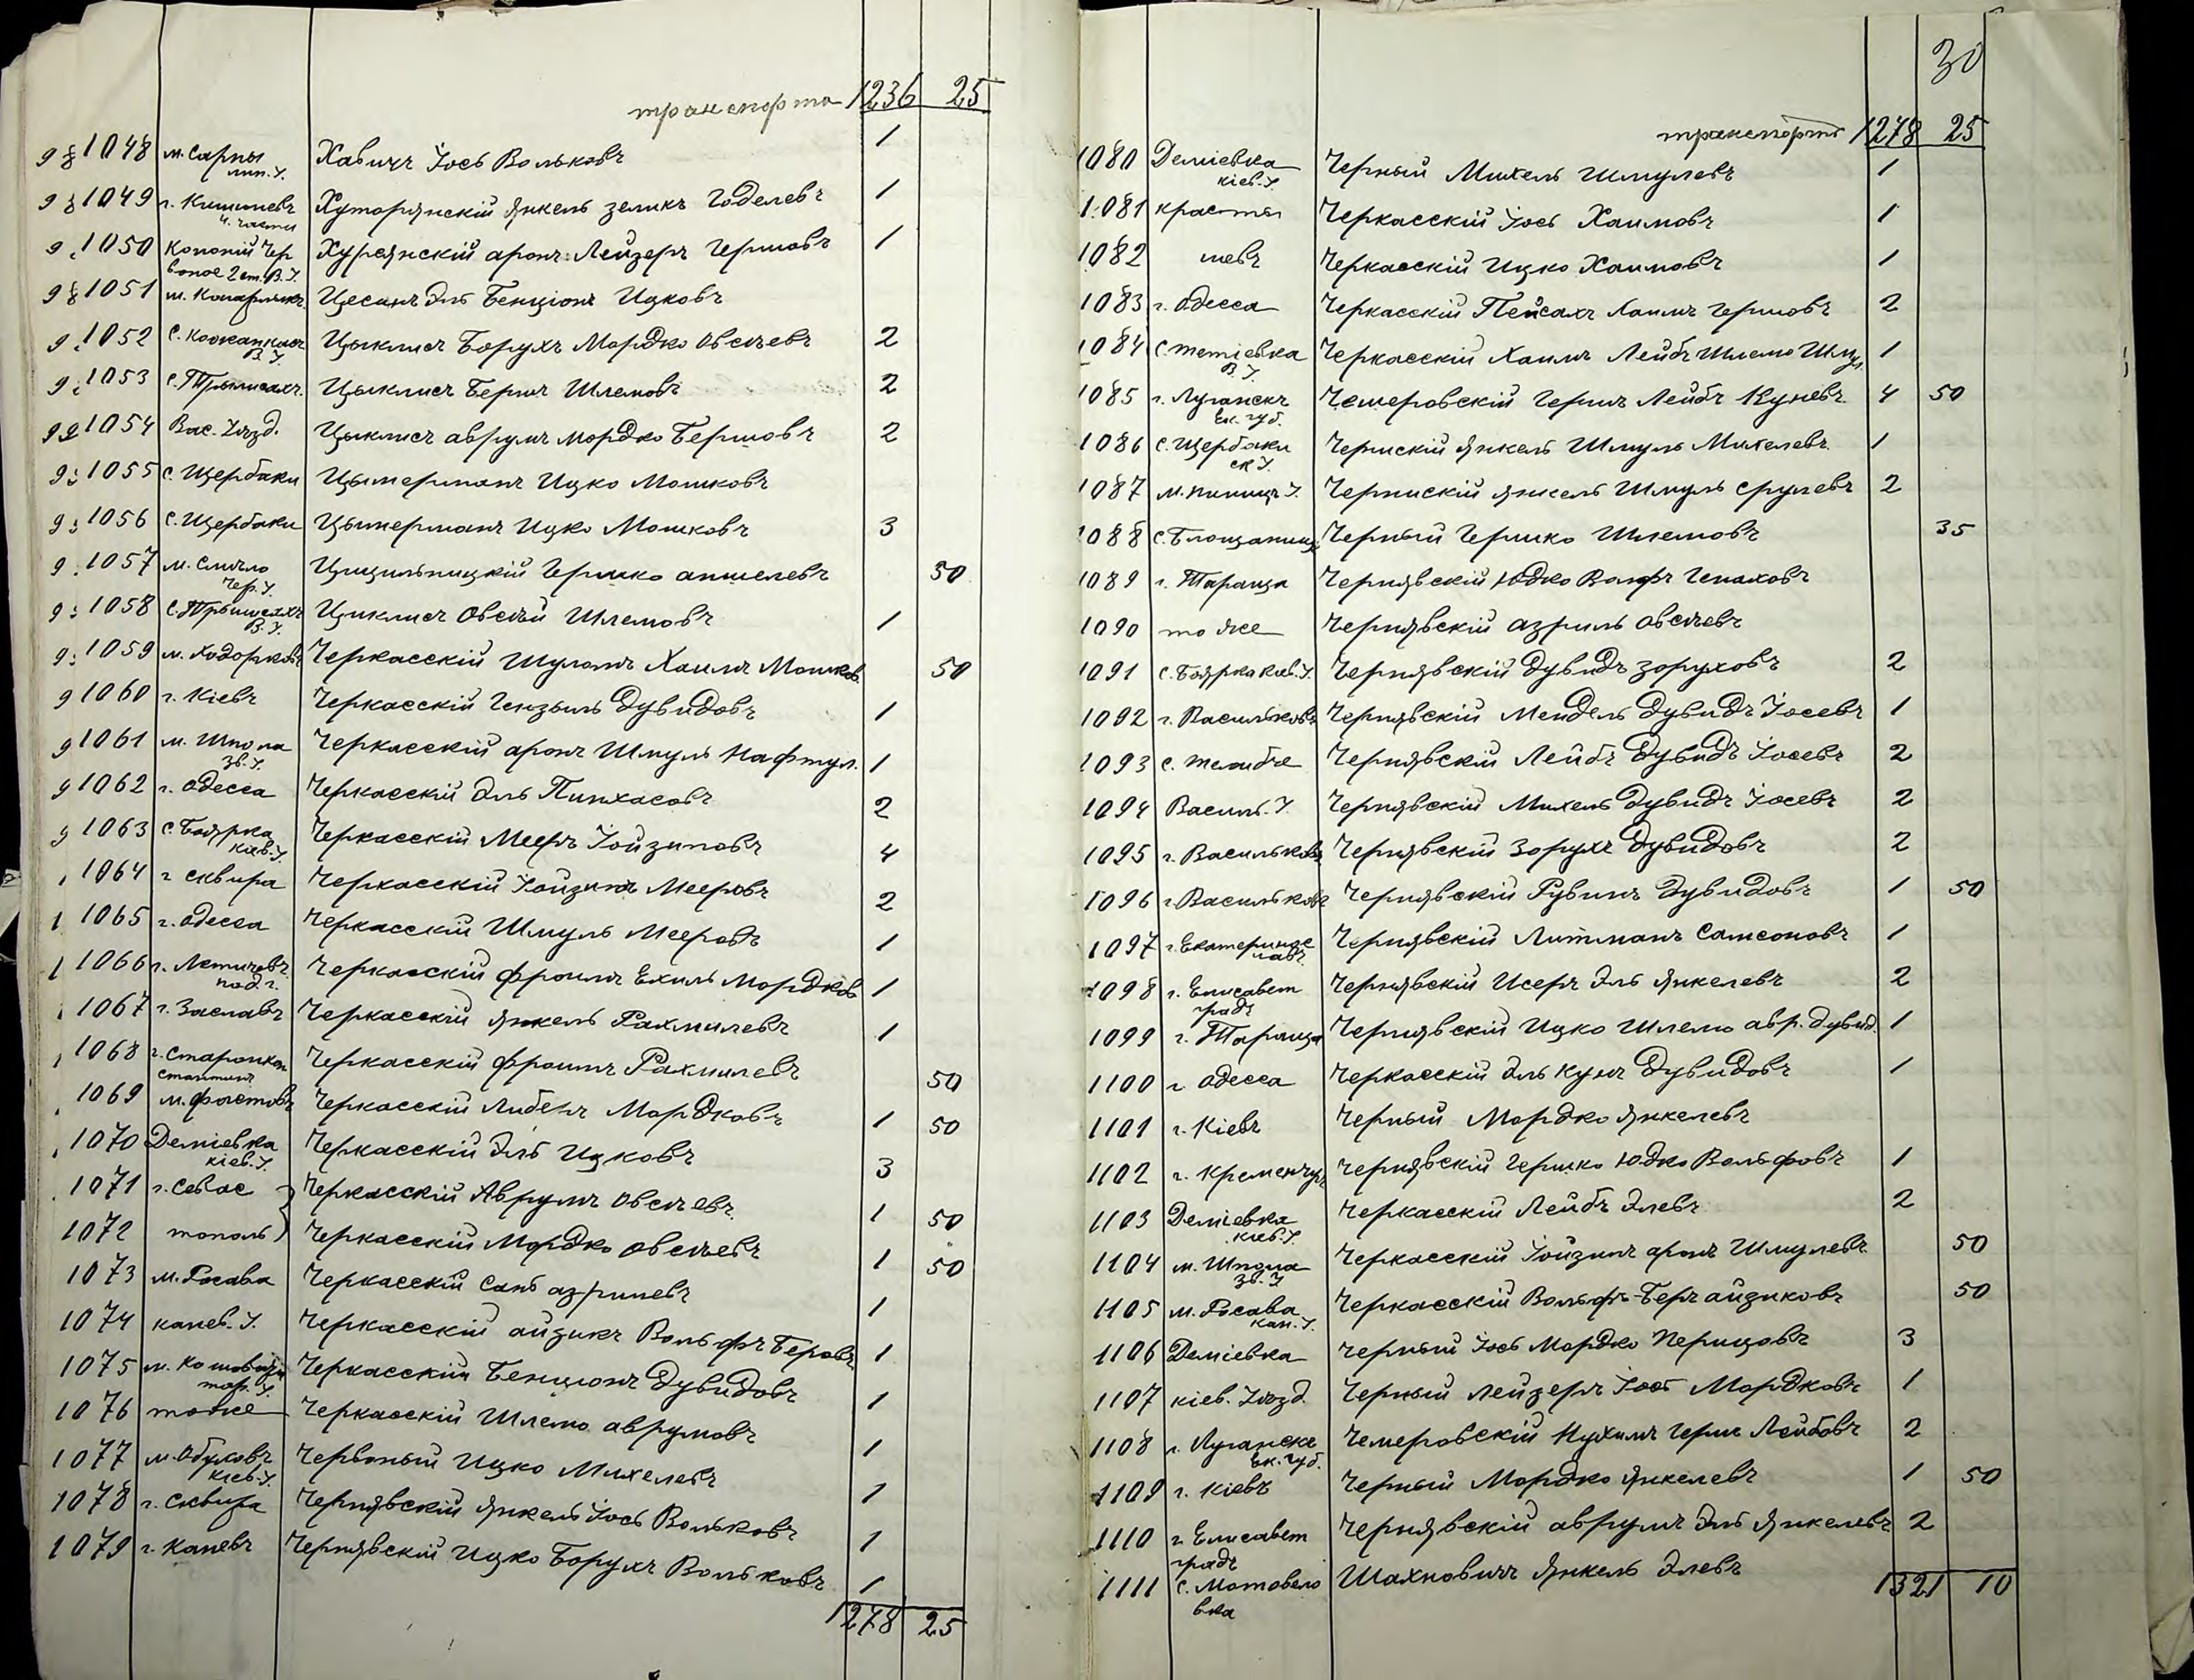 транспорта 1236 25
1048 м. Сарны Хавичъ Іось Вольковъ 1
лип. У.
1049 г. Кишиневъ Хуторянскій Янкель Зеликъ Годелевъ 1
4. части
1050 Колоній Чер Хурсянскій Аронъ Лейзеръ Гершовъ 1
воное 2 ст. В. У.
1051 м. Цесинъ Эль Бенціонъ Ицковъ
1052 с. Цыклисъ Борухъ Мордко Овсѣевъ 2
В. У.
1053 с. Трылисахъ Цыклисъ Беринъ Шлемовъ 2
1054 Вас. Уѣзд. Цыклисъ Аврумъ Мордко Бершовъ 2
1055 с. Щербаки Цымерманъ Ицко Мошковъ
1056 с. Щербаки Цымерманъ Ицко Мошковъ 3
1057 м. Смѣло Гершко Аншелевъ 50
Чер. У.
1058 с. Циклисъ Овсѣй Шлемовъ 1
В. У.
1059 м. Ходорковъ Черкасскій Шуломъ Хаимъ Мошков. 50
1060 г. Кіевъ Черкасскій Гензыль Дувидовъ 1
1061 м. Шпола Черкасскій Аронъ Шмуль Нафтул. 1
Зв. У.
1062 г. Одесса Черкасскій Эль Пинхасовъ 2
1063 с. Боярка Черкасскій Мееръ Іойзиповъ 4
Кіев. У.
1064 г Сквира Черкасскій Іойзипъ Мееровъ 2
1065 г. Одесса Черкасскій Шмуль Мееровъ 1
1066 г. Летичевъ Черкасскій Фроимъ Ехиль Мордков 1
под. г.
1067 г. Заславъ Черкасскій Янкель Рахмилевъ 1
1068 г. Старокон Черкасскій Фроимъ Рахмилевъ 50
стантинъ
1069 м. Фастовъ Черкасскій Либеръ Мордковъ 1 50
1070 Деміевка Черкасскій Эль Ицковъ 3
Кіев. У.
1071 г. Севас Черкасскій Аврумъ Овсѣевъ 1 50
1072 тополь Черкасскій Мордко Овсѣевъ 1 50
1073 м. Росава Черкасскій Сань Азрилевъ 1
1074 Канев. У. Черкасскій Айзикъ Вольфъ Беровъ 1
1075 м. Черкасскій Бенціонъ Дувидовъ 1
тар. У.
1076 тоже Черкасскій Шлемо Аврумовъ 1
1077 м. Обуховъ Червоный Ицко Михелевъ 1
Кіев. У.
1078 г. Сквира Чернявскій Янкель Іось Вольковъ 1
1079 г. Каневъ Чернявскій Ицко Борухъ Вольковъ 1
1278 25
30
транспортъ 1278 25
1080 Деміевка Черный Михель Шмулевъ 1
Кіев. У.
1081 Черкасскій Іось Хаимовъ 1
1082 Черкасскій Ицко Хаимовъ 1
1083 г. Одесса Черкасскій Пейсахъ Хаимъ Гершовъ 2
1084 с. Тетіевка Черкасскій Хаимъ Лейбъ Шлемо Шмул. 1
В. У.
1085 г. Луганскъ Чемеровскій Гершъ Лейбъ Куневъ 4 50
Ек. губ.
1086 с. Щербаки Чернскій Янкель Шмуль Михелевъ 1
ск У.
1087 м. Янкель Шмуль Срулевъ 2
1088 с. Черный Гершко Шлемовъ 35
1089 г. Тараща Чернявскій Юдко Волфъ Генаховъ
1090 то же Чернявскій Азриль Овсѣевъ
1091 с. Боярка Кіев. У. Чернявскій Дувидъ Зоруховъ 2
1092 г. Васильковъ Чернявскій Мендель Дувидъ Іосевъ 1
1093 с. Чернявскій Лейбъ Дувидъ Іосевъ 2
1094 Василь. У. Чернявскій Михель Дувидъ Іосевъ 2
1095 г. Васильковъ Чернявскій Зорухъ Дувидовъ 2
1096 г. Васильковъ Чернявскій Рувинъ Дувидовъ 1 50
1097 г. Екатеринос Чернявскій Литманъ Самсоновъ 1
лавъ
1098 г. Елисавет Чернявскій Исеръ Эль Янкелевъ 2
градъ
1099 г. Тараща Чернявскій Ицко Шлемо Авр. Дувид. 1
1100 г Одесса Черкасскій Эль Кунъ Дувидовъ 1
1101 г. Кіевъ Черный Мордко Янкелевъ
1102 г. Кременчугъ Чернявскій Гершко Юдко Вольфовъ 1
1103 Деміевка Черкасскій Лейбъ Элевъ 2
Кіев. У.
1104 м. Шпола Черкасскій Іойзипъ Аронъ Шмулевъ 50
Зв. У.
1105 м. Росава Черкасскій Вольфъ-Беръ Айзиковъ 50
Кан. У.
1106 Деміевка Черный Іось Мордко Перицовъ 3
1107 Кіев. Уѣзд. Черный Лейзеръ Іось Мордковъ 1
1108 г. Луганскъ Чемеровскій Нухимъ Герш Лейбовъ 2
Ек. Губ.
1109 г. Кіевъ Черный Мордко Янкелевъ 1 50
1110 г Елисавет Чернявскій Аврумъ Эль Янкелевъ 2
градъ
1111 с. Мотовело Шахновичъ Янкель Элевъ
вка
1321 10